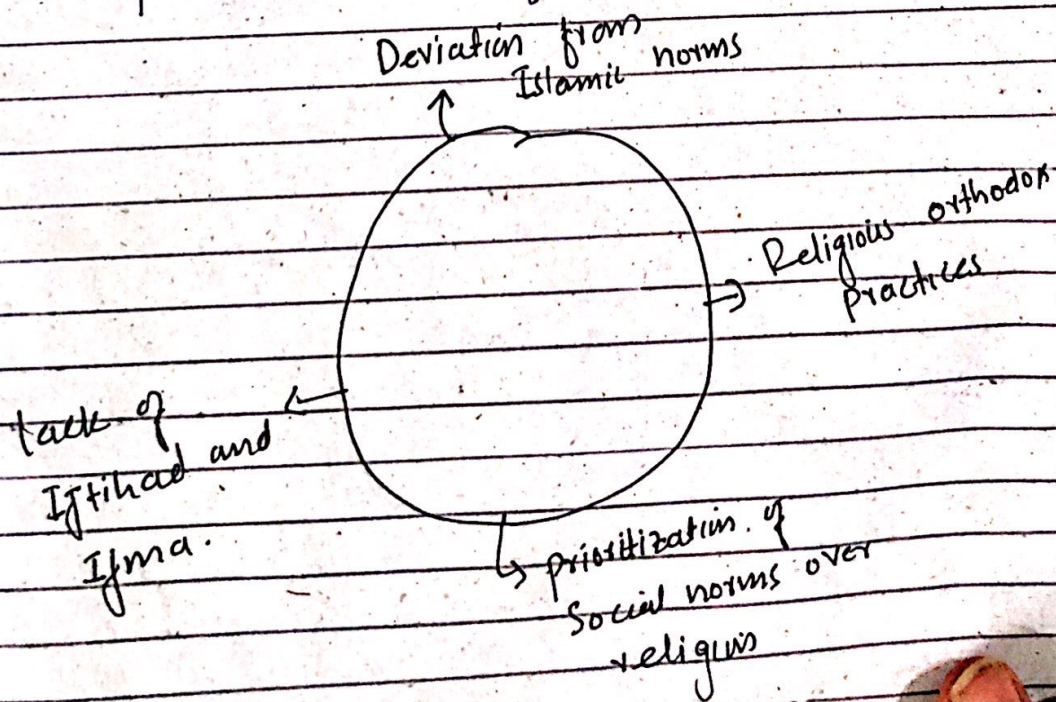 Deviation from
Islamic norms
Religious orthodox
Practices
lack of
Ijtihad and
Ijma.
prioritization of
Social norms over
religuis